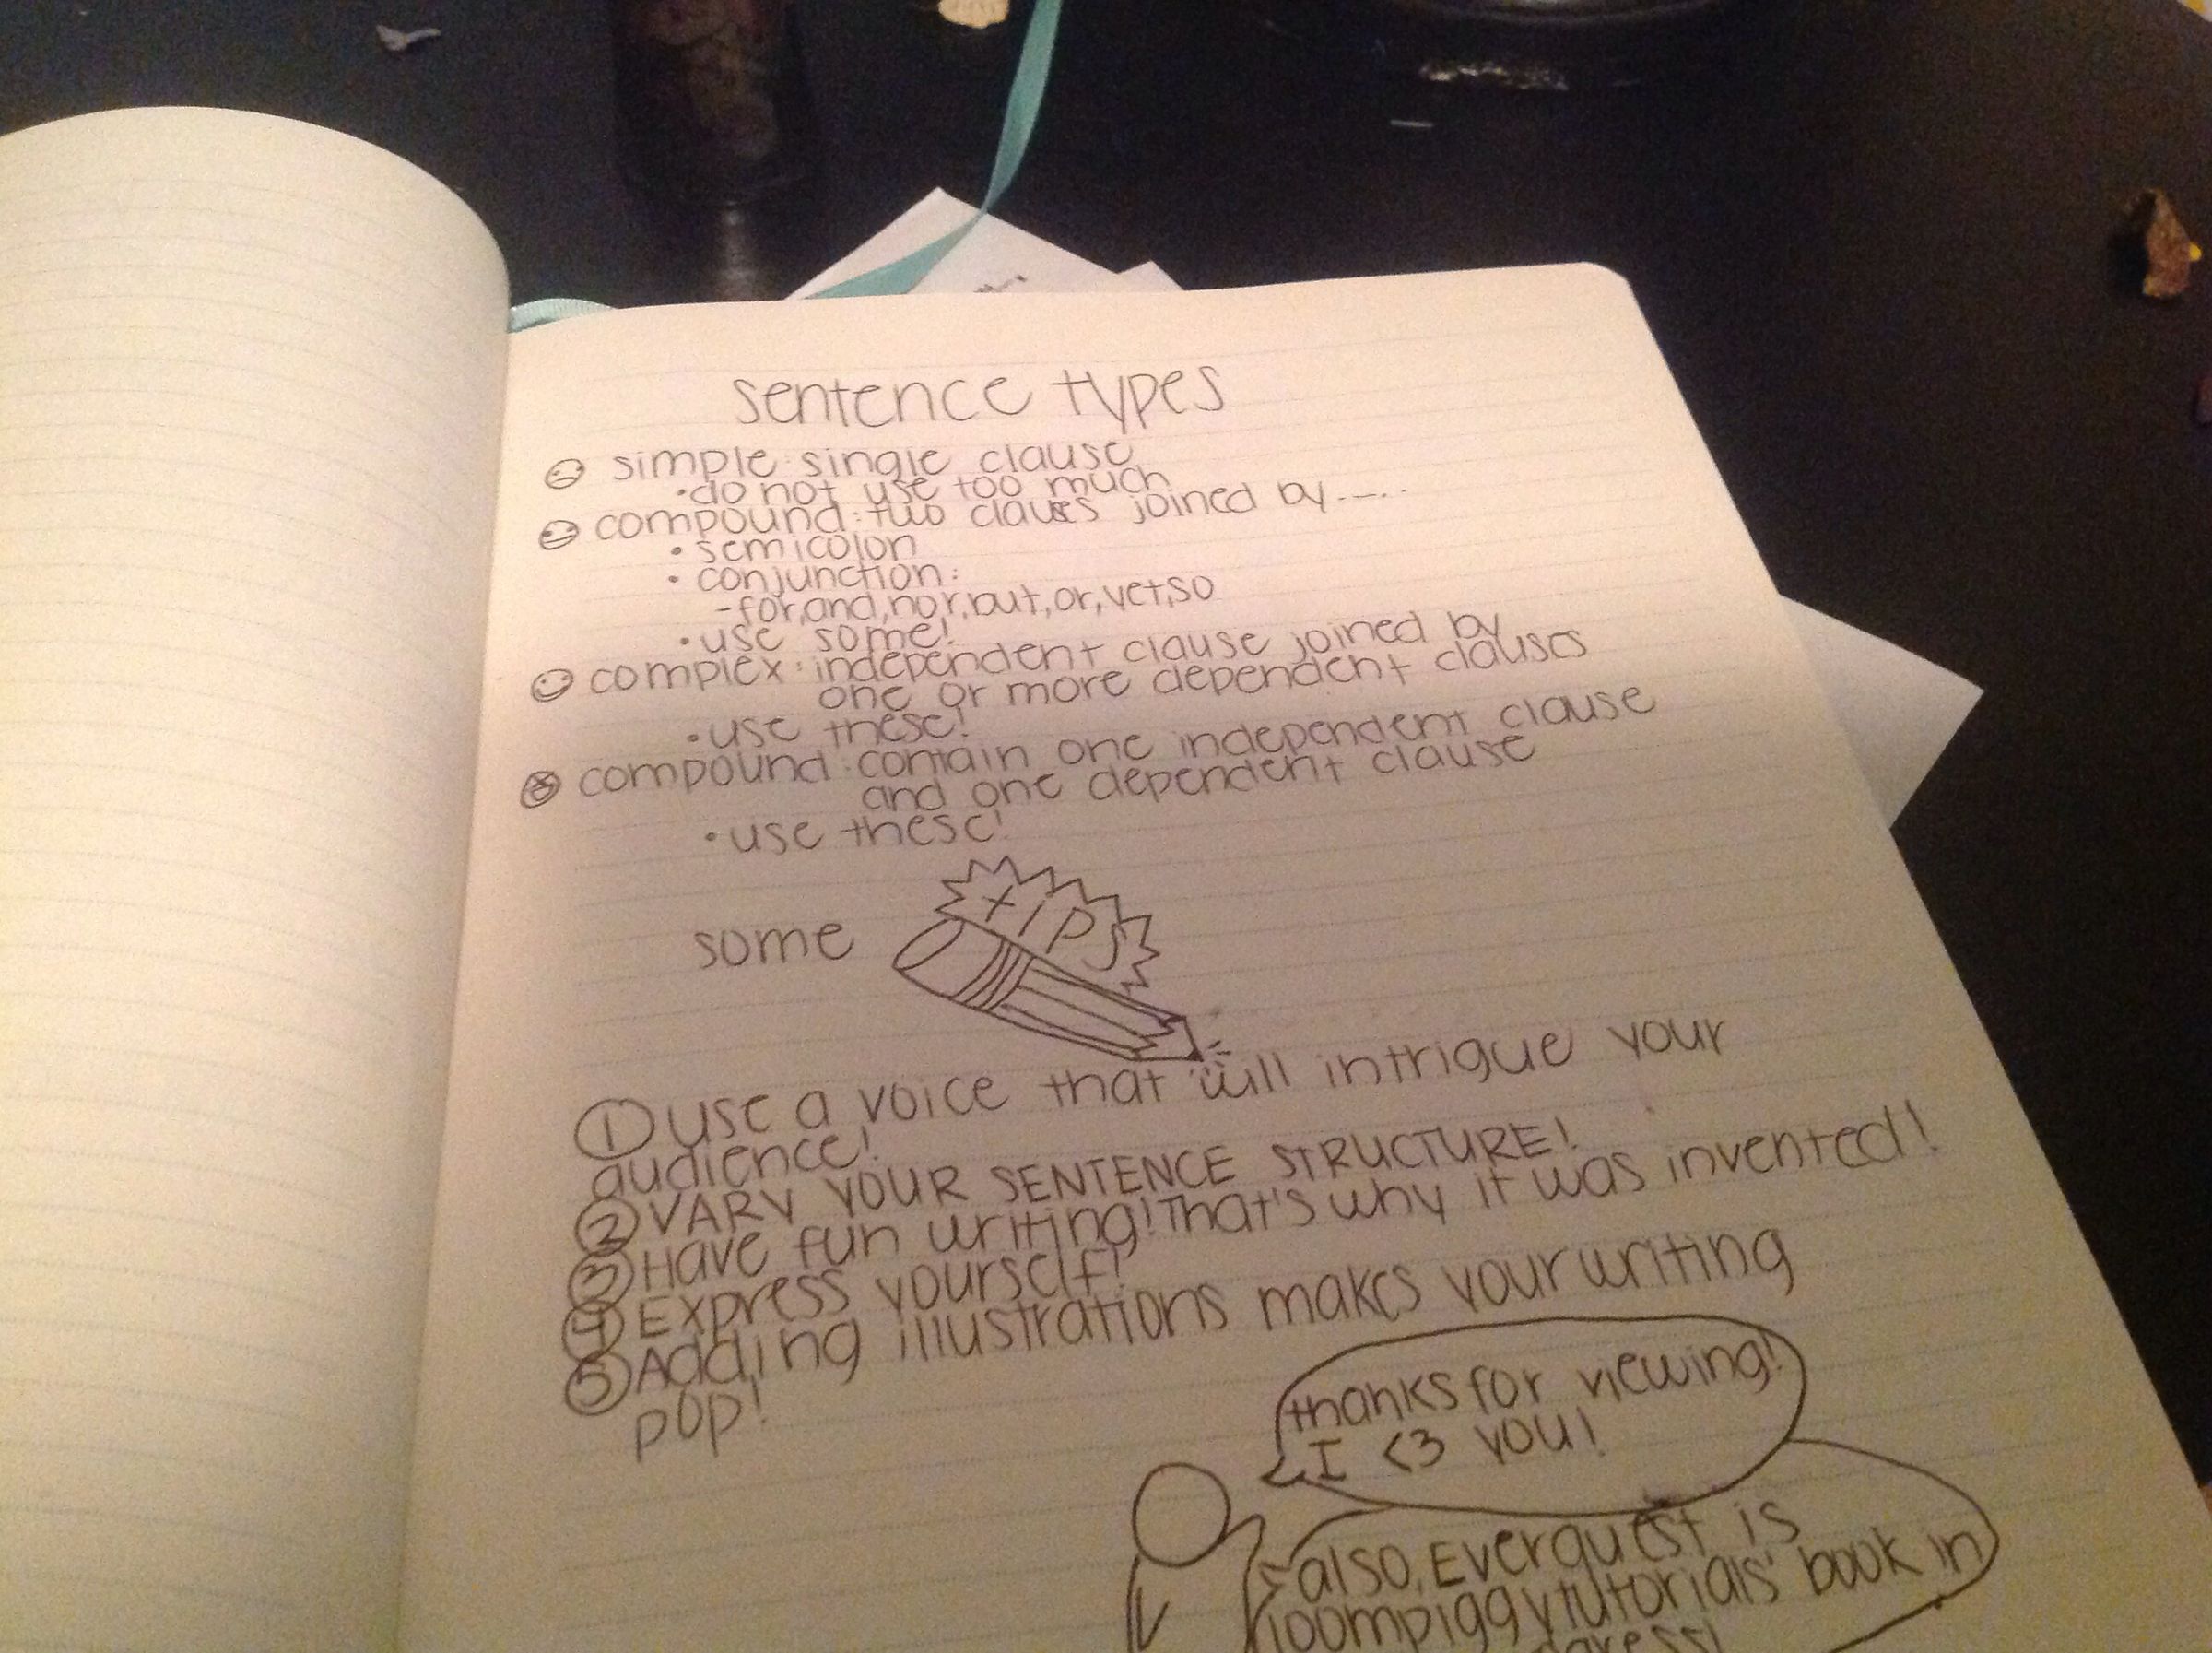 sentence types
simple: single clause
•do not use too much
compound: two clauses joined by-----
• semicolon
• conjunction:
-for,and,nor,but,or,yet,so
•use some!
complex: independent clause joined by
one or more dependent clauses
•use these!
compound: contain one independent clause
and one dependent clause
•use these!
some tips
1 use a voice that will intrigue your
audience!
2 VARY YOUR SENTENCE STRUCTURE!
3 Have fun writing! That's why it was invented!
4 Express yourself!
5 Adding illustrations makes your writing
pop!
thanks for viewing!
I <3 you!
also, Everquest is
loompiggytutorials' book in